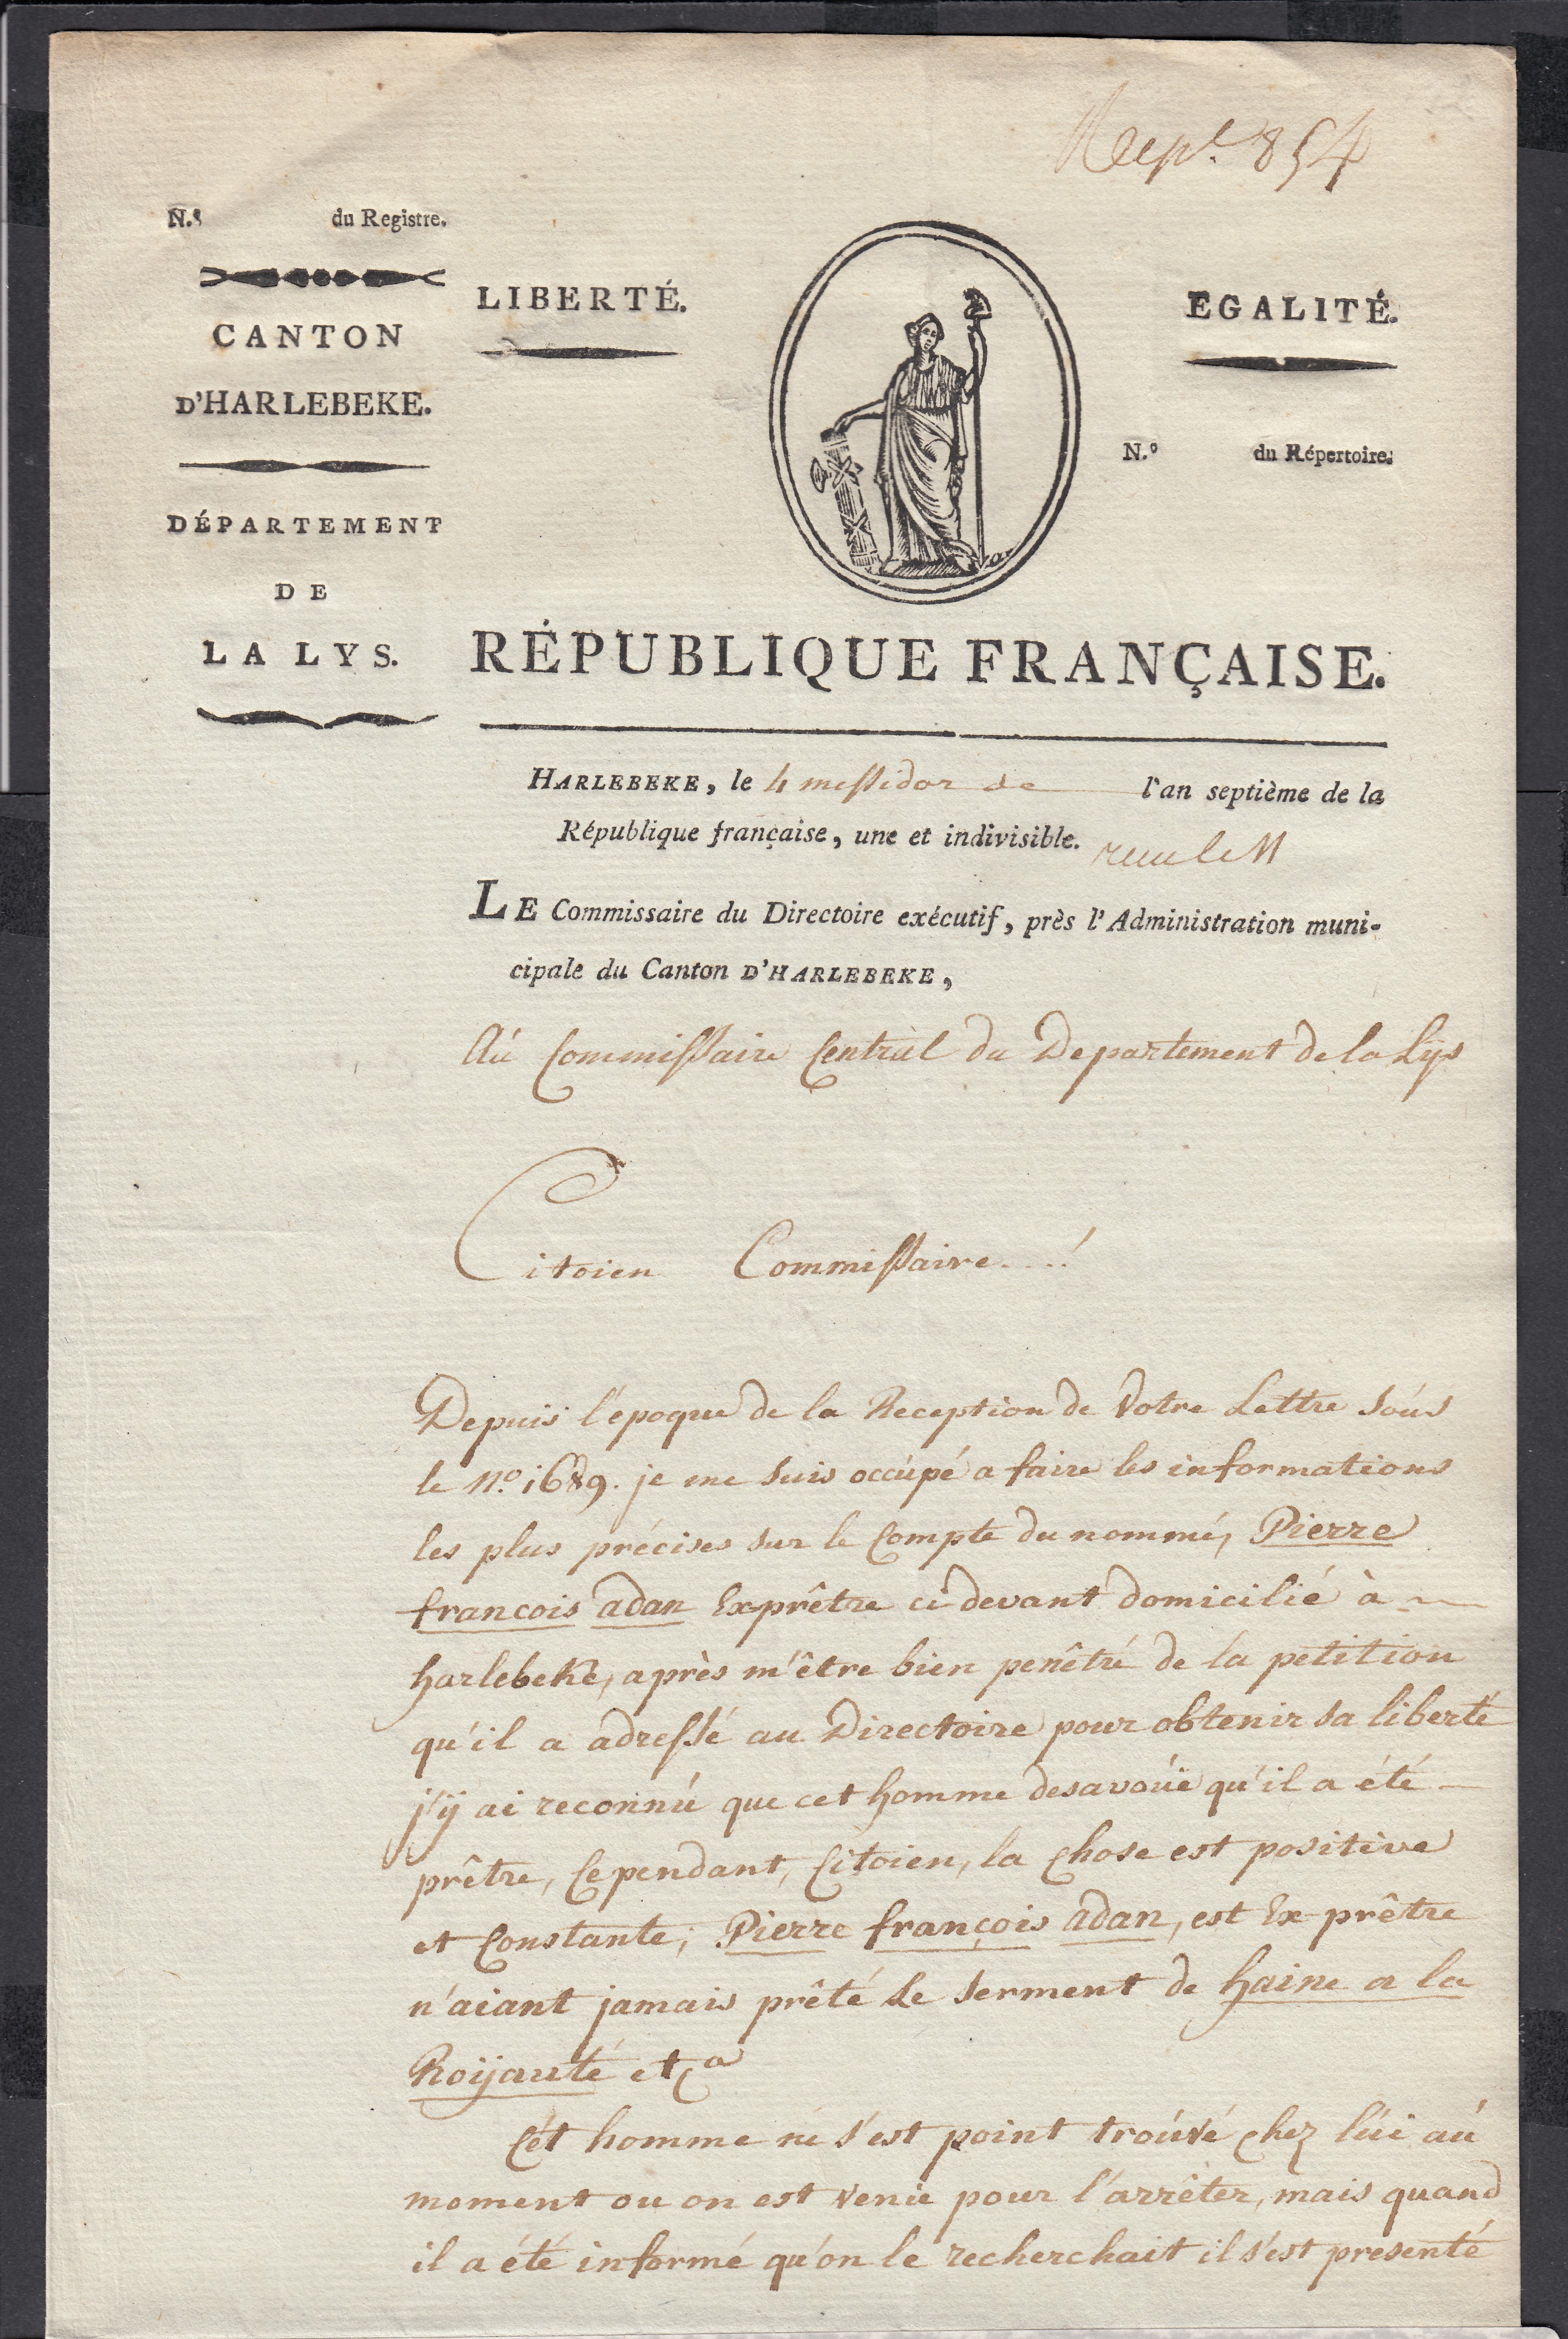 Rept. 854
N.º du Registre.
CANTON
D'HARLEBEKE.
DÉPARTEMENT
DE
LA LYS.
LIBERTÉ.
EGALITÉ.
N.º du Répertoire.
RÉPUBLIQUE FRANÇAISE.
HARLEBEKE, le 4 messidor de l'an septième de la
République française, une et indivisible.
recu le 11
LE Commissaire du Directoire exécutif, près l'Administration muni-
cipale du Canton D'HARLEBEKE,
Aú Commissaire Central du Departement de la Lÿs
Citoien Commissaire....!
Depuis l'epoque de la Reception de Votre Lettre soús
le Nº. 1689. je me suis occúpé a faire les informations
les plus précises sur le Compte du nommé, Pierre
francois adan Ex-prêtre ci devant domicilié à
harlebeke, après m'être bien penêtré de la petition
qu'il a adressé au Directoire pour obtenir sa liberté
j'ÿ ai reconnú que cet homme desavoúe qu'il a été
prêtre, Cependant, Citoien, la Chose est positive
et Constante; Pierre françois adan, est Ex-prêtre
n'aiant jamais prêté Le serment de haine a la
Roÿauté etca
Cét homme ne s'est point troúvé chez lúi aú
moment ou on est venú pour l'arrêter, mais quand
il a été informé qu'on le recherchait il s'est presenté